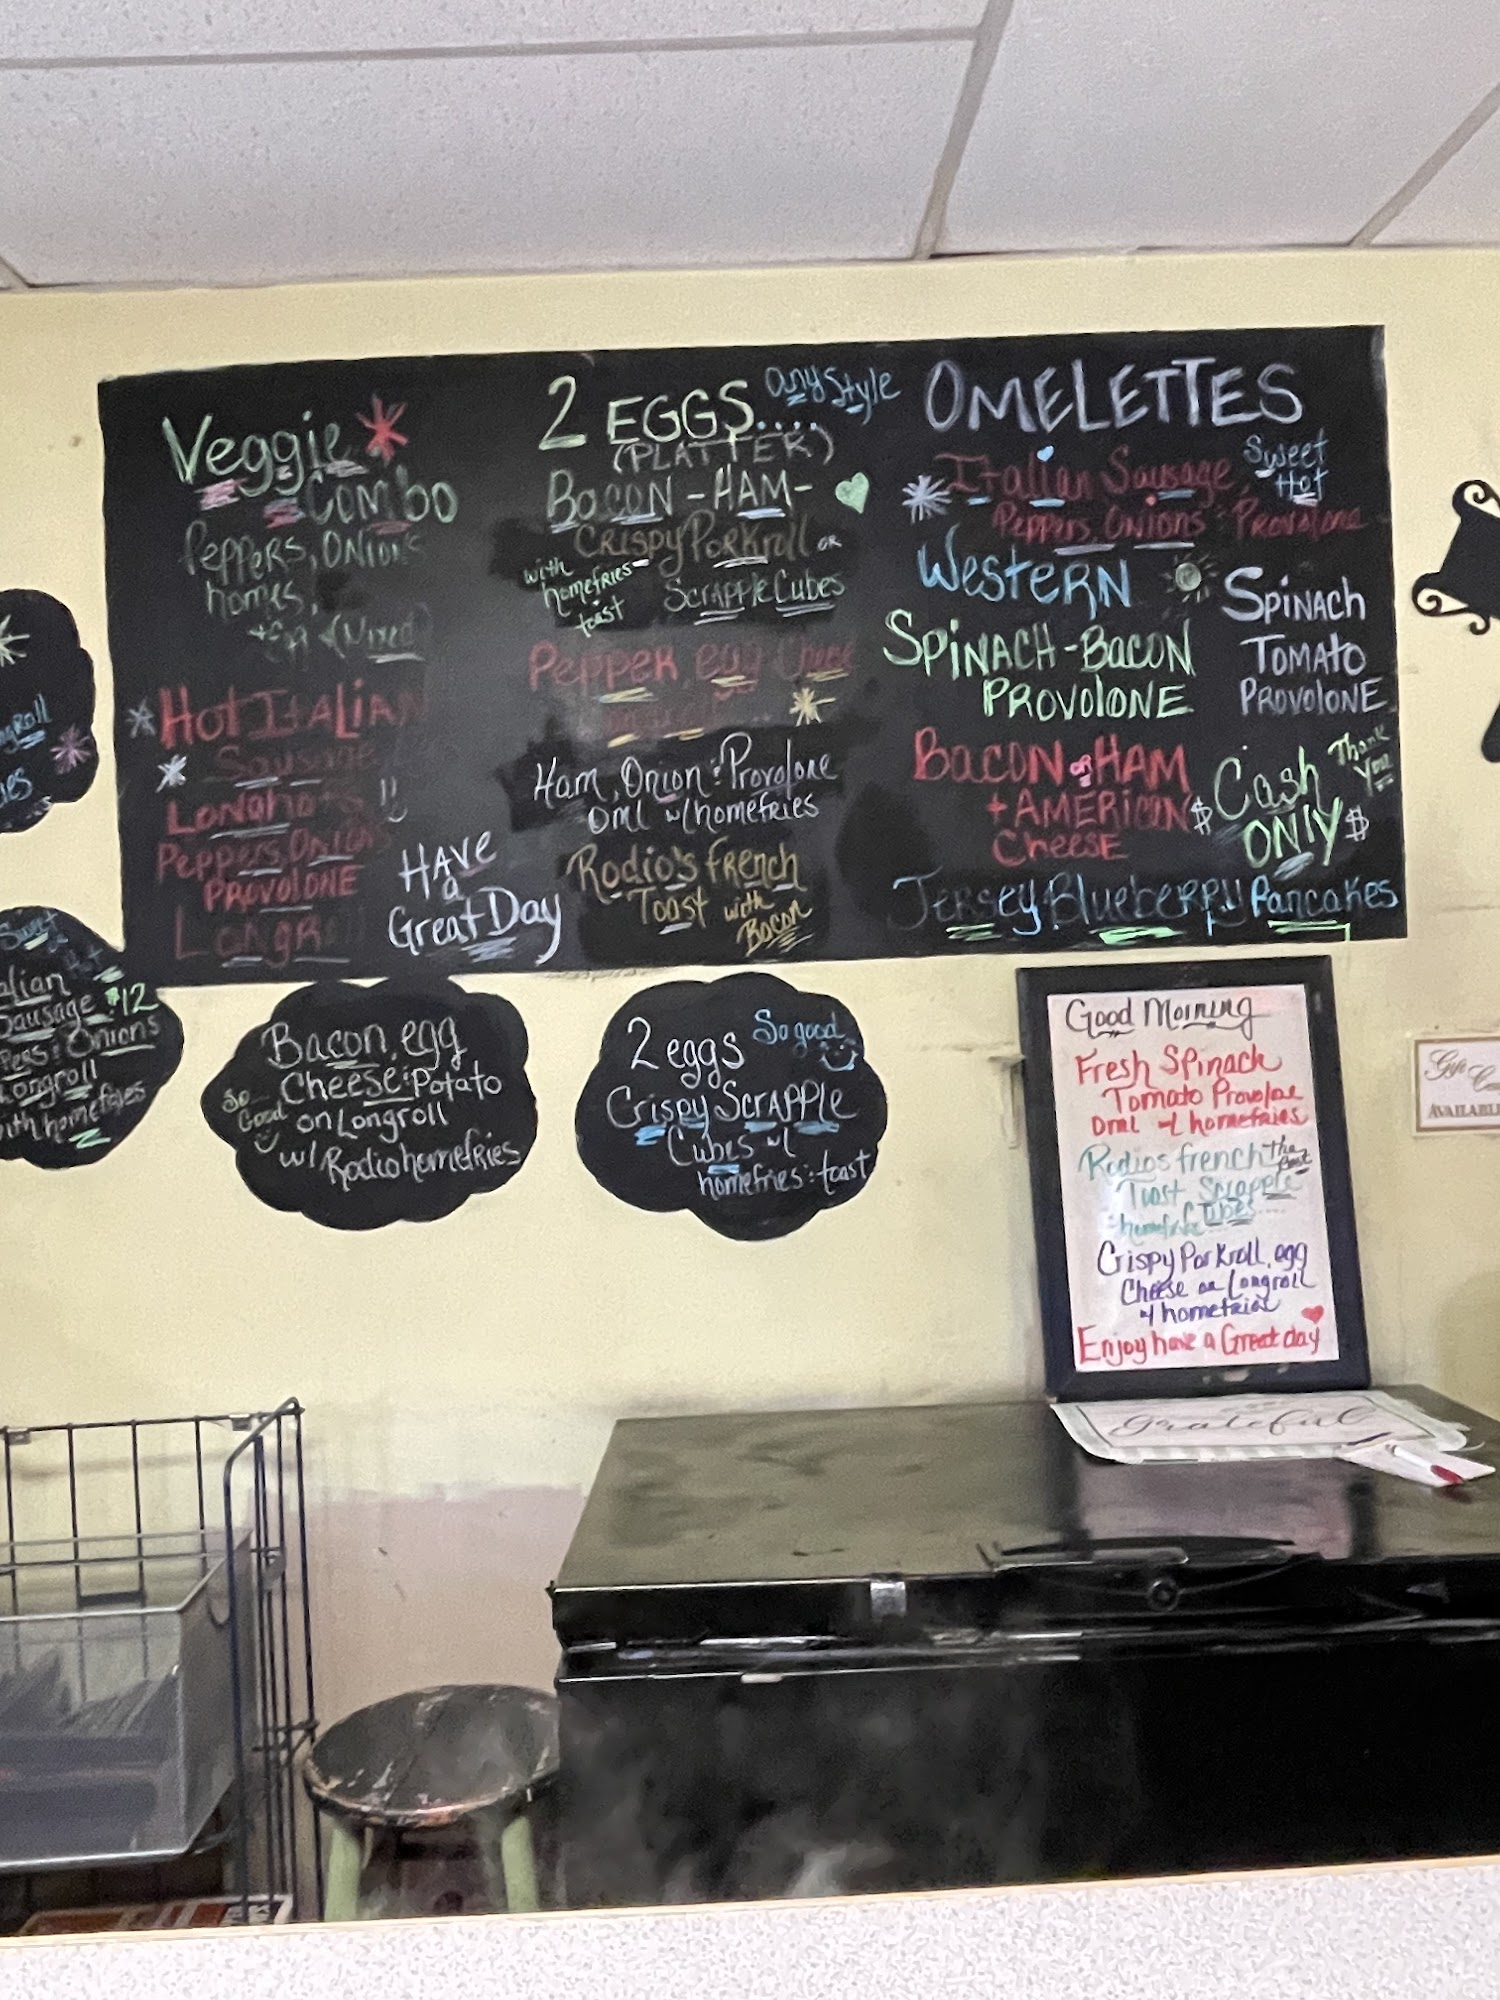 Veggie
Combo
Peppers, Onions
homes,
+ Egg (Mixed)
Hot Italian
Sausage
Longhots
Peppers, Onions
Provolone
Longroll
Have
a
Great Day
2 EGGS.... any Style
(PLATTER)
Bacon - HAM -
Crispy Porkroll or
Scrapple Cubes
with
homefries
toast
Pepper, egg Cheese
Ham, Onion : Provolone
Oml w/ homefries
Rodio's french
Toast with
Bacon
OMELETTES
Italian Sausage, Sweet
Hot
Peppers, Onions : Provolone
Western
Spinach - Bacon
Provolone
Spinach
Tomato
Provolone
Bacon or HAM
+ American
Cheese
$ Cash
ONLY $
Thank
You
Jersey Blueberry Pancakes
Sweet
Sausage $12
Onions
Longroll
with homefries
Bacon, egg
Cheese : Potato
on Longroll
w/ Rodio homefries
So...
Good
2 eggs So good
Crispy Scrapple
Cubes w/
homefries : toast
Good Morning
Fresh Spinach
Tomato Provolone
Oml w/ homefries
Rodios french The Best
Toast Scrapple
Cubes....
Crispy Porkroll, egg
Cheese on Longroll
w/ homefries
Enjoy have a Great day
grateful
Gift
AVAILABLE